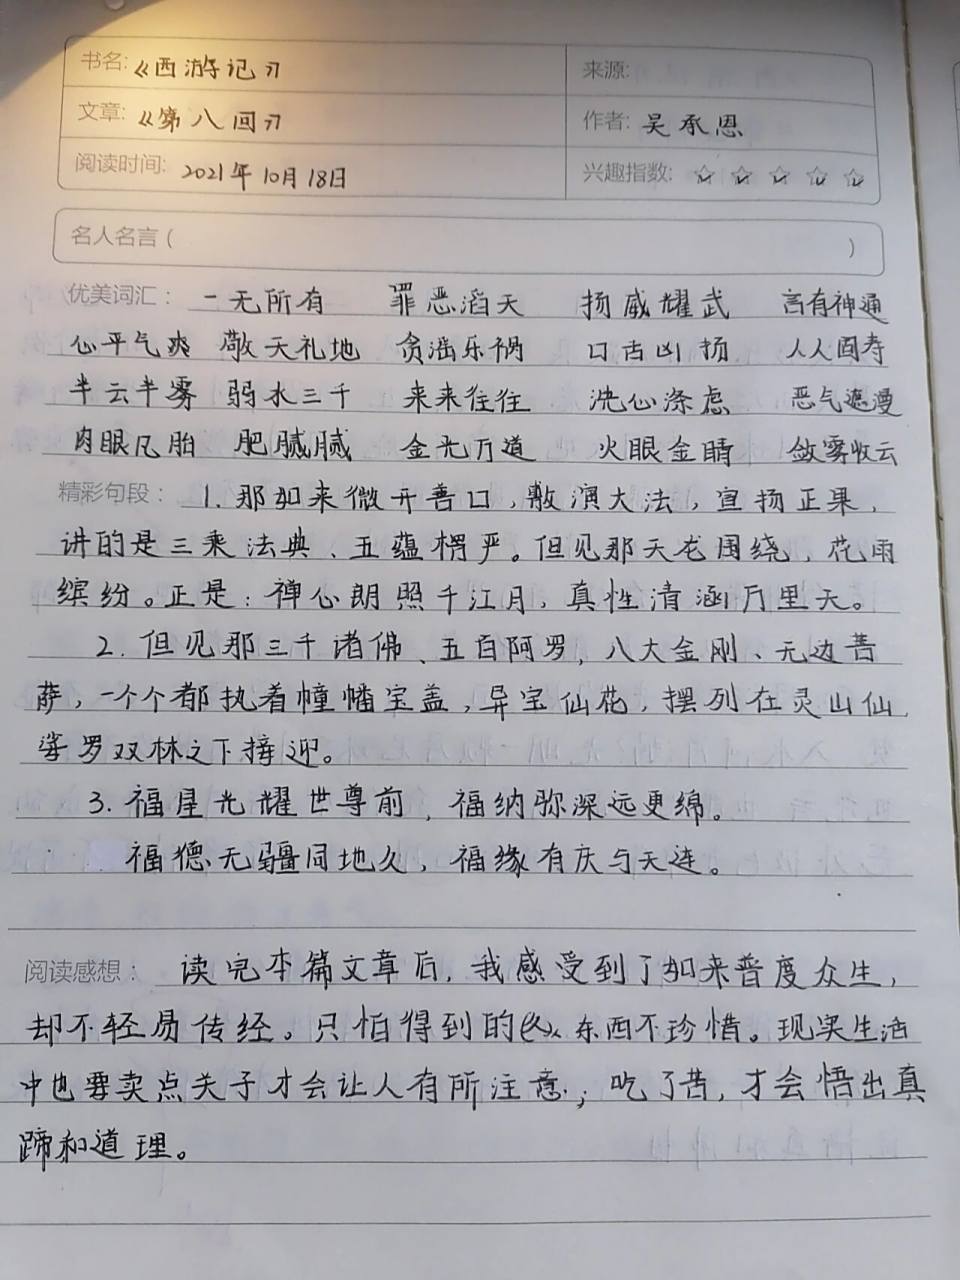 书名:《西游记》 来源:
文章:《第八回》 作者: 吴承恩
阅读时间: 2021年10月18日 兴趣指数: ☆ ☆ ☆ ☆ ☆
名人名言 ( )
优美词汇: 一无所有 罪恶滔天 扬威耀武 言有神通
心平气爽 敬天礼地 贪淫乐祸 口舌凶扬 人人固寿
半云半雾 弱水三千 来来往往 洗心涤虑 恶气遮漫
肉眼凡胎 肥腻腻 金光万道 火眼金睛 敛雾收云
精彩句段: 1.那如来微开善口,敷演大法,宣扬正果,
讲的是三乘法典、五蕴楞严。但见那天龙围绕,花雨
缤纷。正是:禅心朗照千江月,真性清涵万里天。
2.但见那三千诸佛、五百阿罗,八大金刚、无边菩
萨,一个个都执着幢幡宝盖,异宝仙花,摆列在灵山仙
娑罗双林之下接迎。
3.福星光耀世尊前,福纳弥深远更绵。
福德无疆同地久,福缘有庆与天连。
阅读感想: 读完本篇文章后,我感受到了如来普度众生,
却不轻易传经。只怕得到的 东西不珍惜。现实生活
中也要卖点关子才会让人有所注意;吃了苦,才会悟出真
蹄和道理。